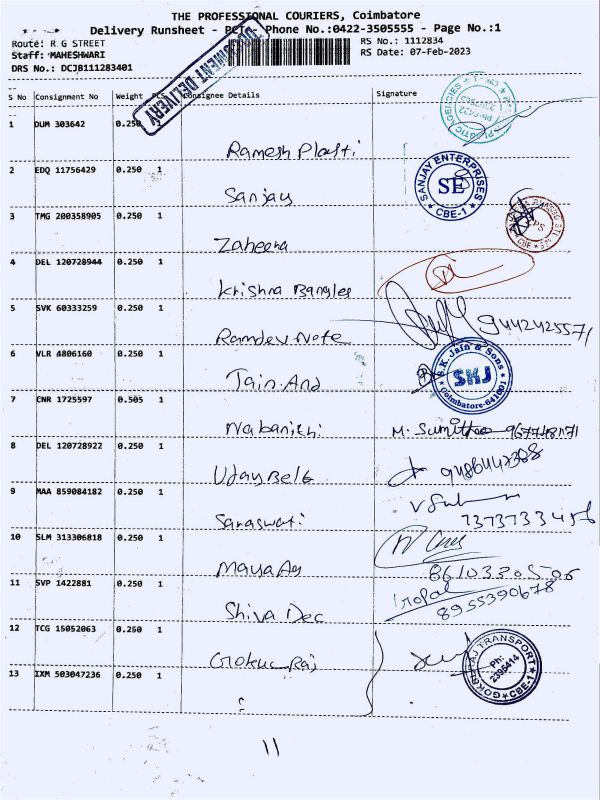 THE PROFESSIONAL COURIERS, Coimbatore
Delivery Runsheet - PCI - Phone No.:0422-3505555 - Page No.:1
Route: R G STREET RS No.: 1112834
Staff: MAHESHWARI RS Date: 07-Feb-2023
DRS No.: DCJB111283401
DOCUMENT DELIVERY
S No Consignment No Weight PCS Consignee Details Signature
1 DUM 303642 0.250
Ramesh Plasti
2 EDQ 11756429 0.250 1
SANJAY ENTERPRISES SE CBE-1
Sanjay
3 TMG 200358905 0.250 1
Zaheena
4 DEL 120728944 0.250 1
Krishna Bangles
5 SVK 60333259 0.250 1
9442425571
Ramdev Note
6 VLR 4806160 0.250 1
S.K. Jain & Sons SKJ Coimbatore-641001
Jain And
7 CNR 1725597 0.505 1
Nabanichi M. Sumithra
8 DEL 120728922 0.250 1
Uday Belt
9 MAA 859084182 0.250 1
7373733456
Saraswati
10 SLM 313306818 0.250 1
Maya Ag
11 SVP 1422881 0.250 1
8955390678
Shiva Dec
12 TCG 15052063 0.250 1
Gokul Raj
GOKULRAJ TRANSPORT Ph: 2396414 CBE-1
13 IXM 503047236 0.250 1
11